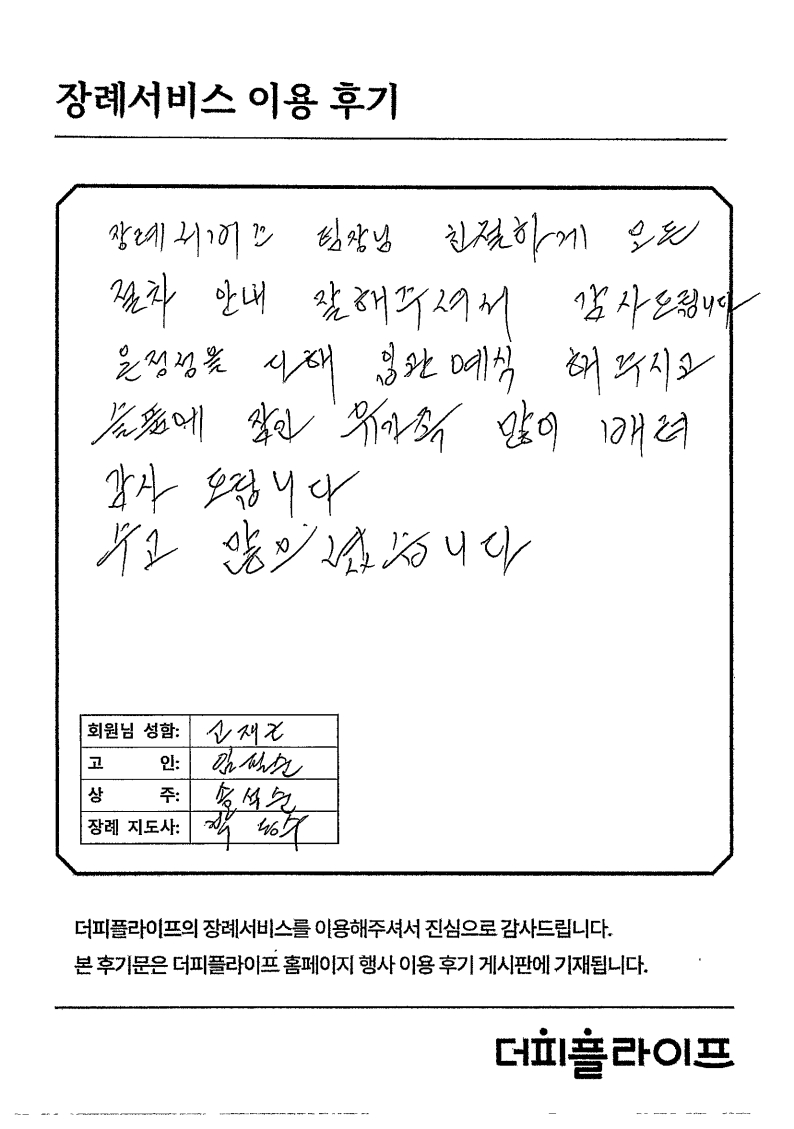 장례서비스 이용 후기
장례서비스 팀장님 친절하게 모든
절차 안내 잘해주셔서 감사드립니다
온정성을 다해 입관 예식 해 주시고
슬픔에 잠긴 유가족 많이 배려
감사 드립니다
수고 많이 셨습니다
회원님 성함:
고 인:
상 주: 송석순
장례 지도사:
더피플라이프의 장례서비스를 이용해주셔서 진심으로 감사드립니다.
본 후기문은 더피플라이프 홈페이지 행사 이용 후기 게시판에 기재됩니다.
더피플라이프